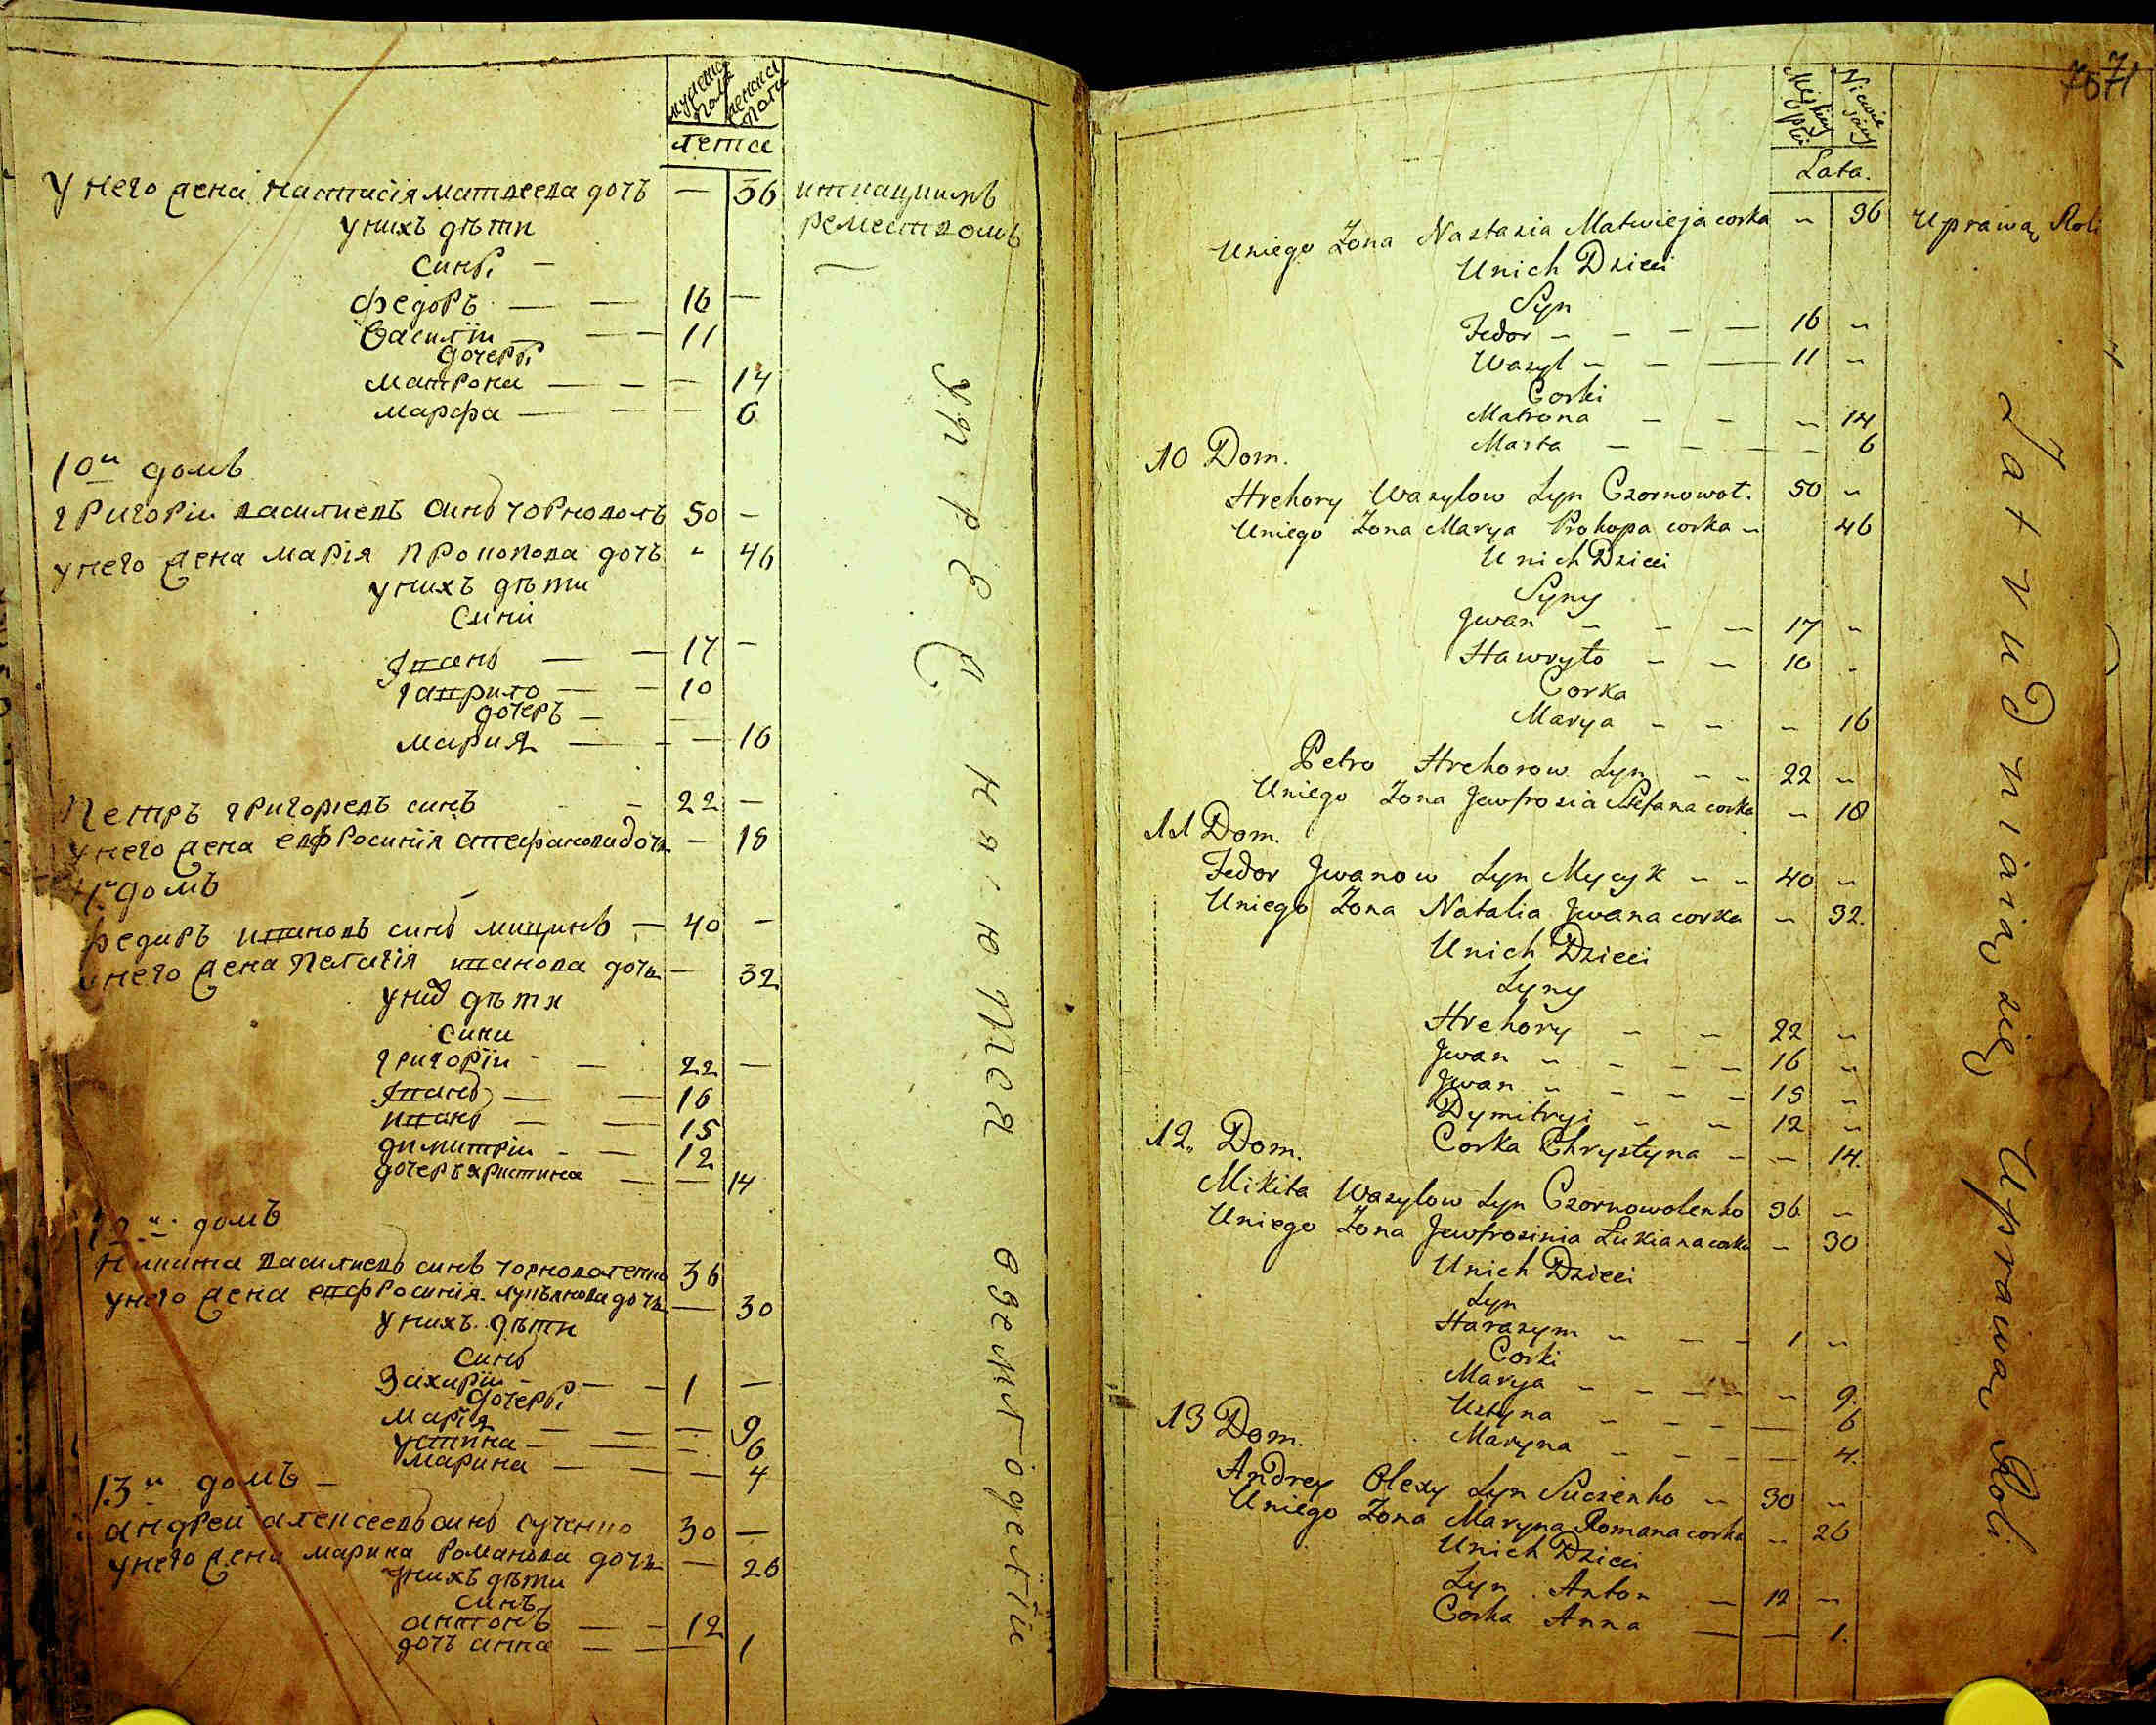 мужеска пола
женска пола
лета
У него жена настасія матвеева дочъ — 36
ткацкимъ
ремествомъ
у нихъ дѣти
сині —
федоръ — — 16 —
василіи — — 11
дочері
матрона — — — 14
марфа — — — 6
10й домъ
григоріи василиевъ синъ чорноволъ 50 —
у него жена марія прокопова дочъ - 46
у нихъ дѣти
сини
Іванъ — — 17 —
гаврило — — 10
дочеръ — —
мария — — — 16
Петръ григориевъ синъ - - 22 —
у него жена евфросинія стефанова дочъ — 18
домъ
федоръ ивановъ синъ мицикъ — 40 —
у него жена пелагія иванова дочъ — 32
у них дѣти
сини
григоріи - — 22 —
Іванъ — — 16
иванъ — — 15
димитріи - — 12
дочеръ христина — — 14
12й домъ
никита василиевъ синъ чорноволенко 36
у него жена евфросинія лукъянова дочъ — 30
у нихъ дѣти
синъ
Захаріи - — - 1 —
дочері
марія — — — 9
устина — — - 6
марина — — — 4
13й домъ —
андреи алексеевъ синъ сученко 30 —
у него жена марина романова дочъ — 26
у нихъ дѣти
синъ
антонъ — - 12
дочъ анна — — — 1
упражняются
Męskiey płci
Niewie
Lata.
Uniego Zona Nastazia Matwieja corka — 36
Uprawą Roli
Unich Dzieci
Syn
Fedor — — — — 16 —
Wasyl — — — 11 —
Corki
Matrona — — — 14
Marta — — — — 6
10 Dom.
Hrehory Wasylow Syn Czornowoł. 50 —
Uniego Zona Marya Prokopa corka — 46
Unich Dzieci
Syny
Jwan — — — 17 —
Hawryło — — 10 -
Corka
Marya — — — 16
Petro Hrehorow Syn — — 22 —
Uniego Zona Jewfrosia Stefana corka — 18
11 Dom.
Fedor Jwanow Syn Mycyk — — 40 —
Uniego Zona Natalia Jwana corka — 32.
Unich Dzieci
Syny
Hrehory — — 22 —
Jwan — — — — 16 —
Jwan — — — — 15 —
Dymitryi — — 12 —
Corka Chrystyna — — 14.
12. Dom.
Mikita Wasylow Syn Czornowolenko 36 —
Uniego Zona Jewfrosinia Łukiana corka — 30
Unich Dzieci
Syn
Harasym — — — 1 —
Corki
Marya — — — — — 9.
Ustyna — — — — 6
Maryna — — — — 4.
13 Dom.
Andrey Olexy Syn Suczenko — 30 —
Uniego Zona Maryna Romana corka — 26
Unich Dzieci
Syn Anton — 12 —
Corka Anna — — 1.
Zatrudniaią się Uprawą Roli